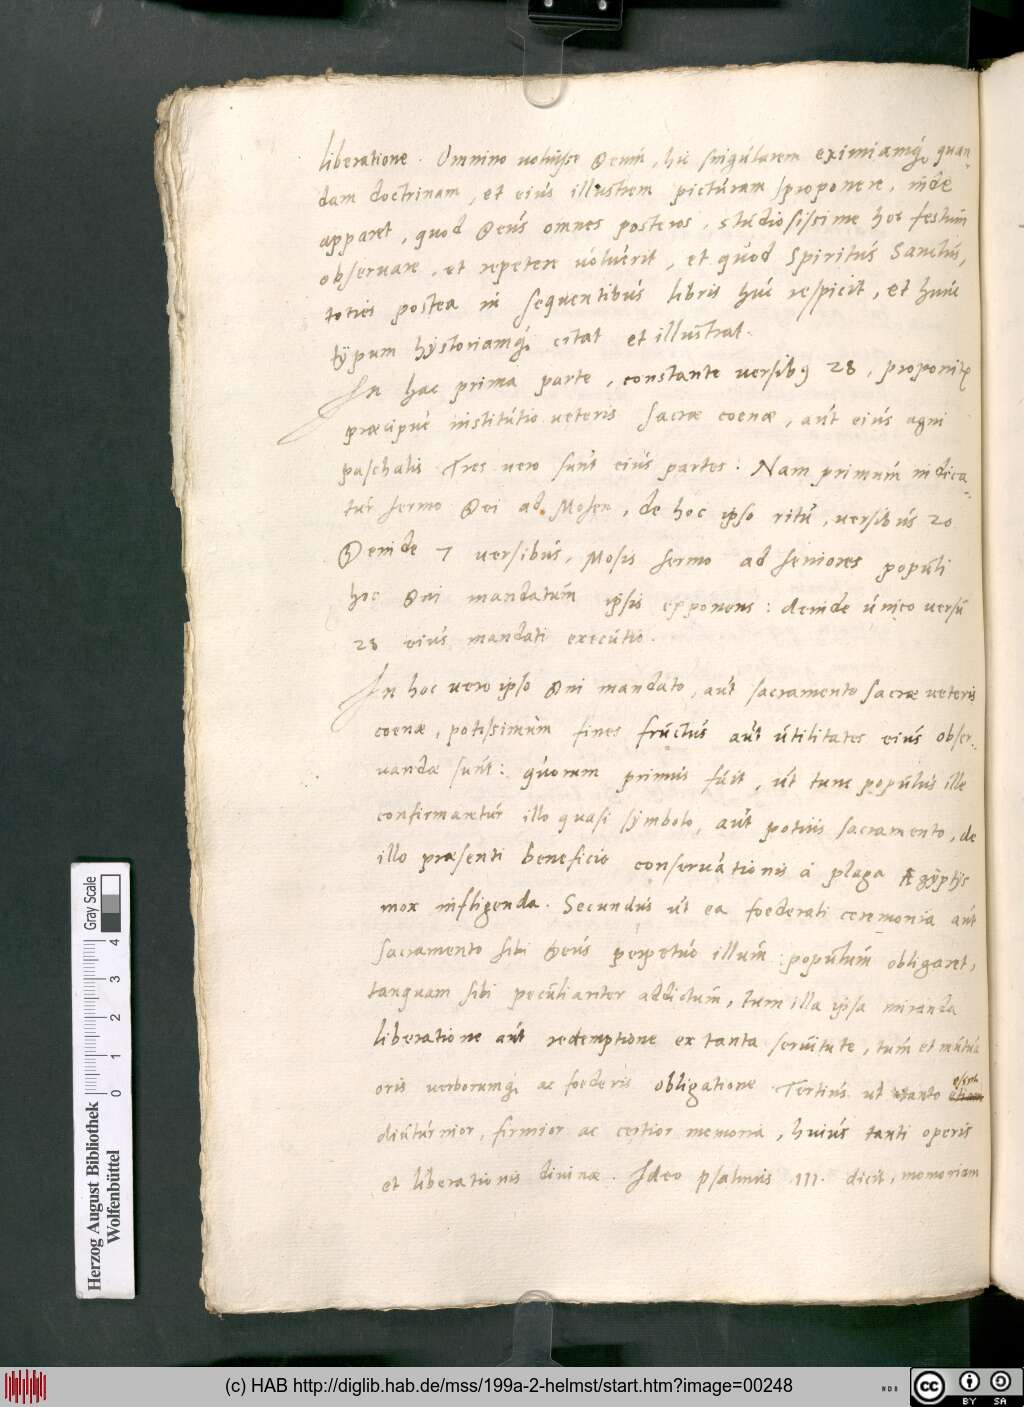 liberatione. Omnino voluisse Deum, hic singularem eximiamq́, quan-
dam doctrinam, et eius illustrem picturam proponere, inde
apparet, quod Deus omnes posteros, studiosissime hoc festum
observare, et repetere voluerit, et quod Spiritus Sanctus,
toties postea in sequentibus libris huc respicit, et hunc
typum hystoriamq́, citat et illustrat.
In hac prima parte, constante versib9 28, proponit̃
præcipue institutio veteris sacræ coenæ, aut eius agni
paschalis. Tres vero sunt eius partes: Nam primum indica-
tur sermo Dei ad Mosen, de hoc ipso ritu, versibus 20
Deinde 7 versibus, Mosis sermo ad seniores populi
hoc Dni mandatum ipsis exponens: deinde unico versu
28 eius mandati executio.
In hoc vero ipso Dni mandato, aut sacramento sacræ veteris
coenæ, potissimum fines fructus aut utilitates eius obser-
vandæ sunt: quorum primus fuit, ut tunc populus ille
confirmaretur illo quasi symbolo, aut potius sacramento, de
illo præsenti beneficio conservationis à plaga Ægyptijs
mox infligenda. Secundus ut ea foederati ceremonia aut
sacramento sibi Deus perpetuo illum populum obligaret,
tanquam sibi peculiariter addictum, tum illa ipsa miranda
liberatione aut redemptione ex tanta servitute, tum et mutua
oris verborumq́, ac foederis obligatione. Tertius ut tanto etiam
diuturnior, firmior ac certior memoria, huius tanti operis
et liberationis divinæ. Ideo psalmus 111. dicit, memoriam
Gray Scale
0 1 2 3 4
Herzog August Bibliothek
Wolfenbüttel
(c) HAB http://diglib.hab.de/mss/199a-2-helmst/start.htm?image=00248
cc BY SA